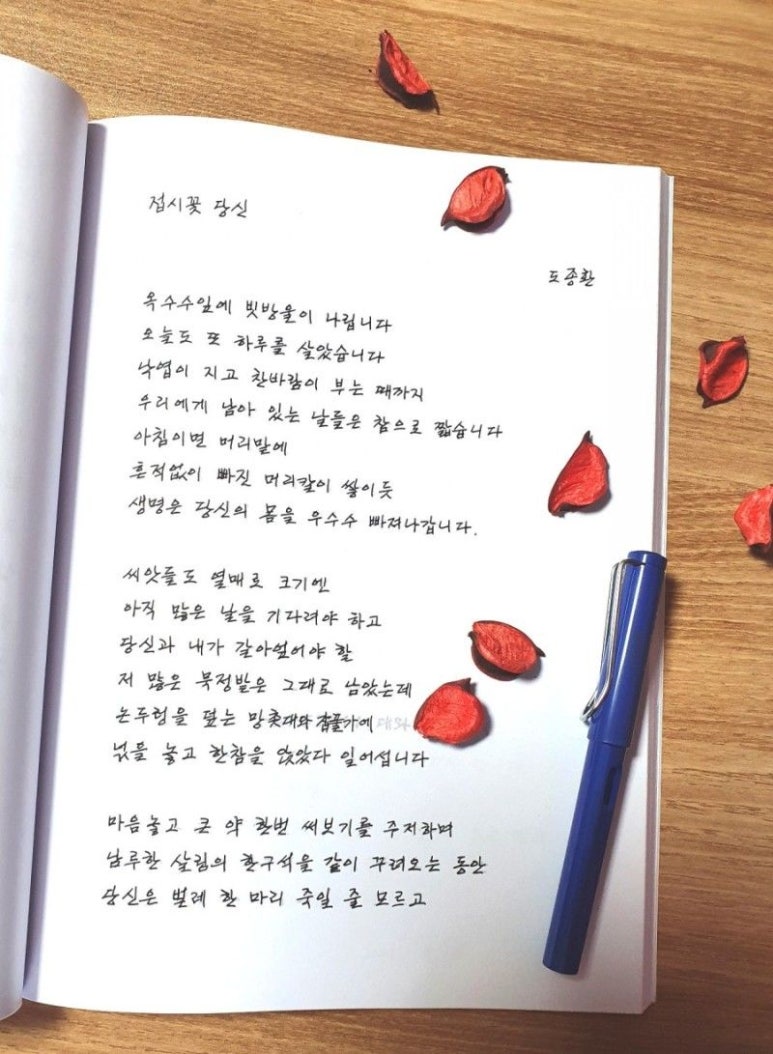 접시꽃 당신
도종환
옥수수잎에 빗방울이 나립니다
오늘도 또 하루를 살았습니다
낙엽이 지고 찬바람이 부는 때까지
우리에게 남아 있는 날들은 참으로 짧습니다
아침이면 머리맡에
흔적없이 빠진 머리칼이 쌓이듯
생명은 당신의 몸을 우수수 빠져나갑니다.
씨앗들도 열매로 크기엔
아직 많은 날을 기다려야 하고
당신과 내가 갈아엎어야 할
저 많은 묵정밭은 그대로 남았는데
논두렁을 덮는 망촛대와 잡풀가에
넋을 놓고 한참을 앉았다 일어섭니다
마음놓고 큰 약 한번 써보기를 주저하며
남루한 살림의 한구석을 같이 꾸려오는 동안
당신은 벌레 한 마리 죽일 줄 모르고